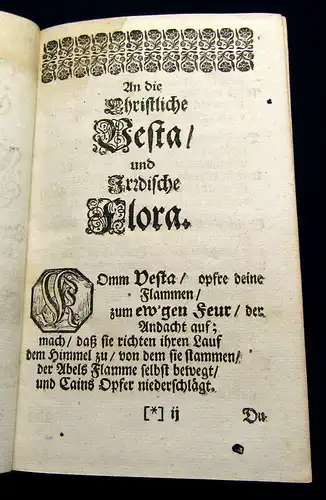 An die
Christliche
Vesta/
und
Irrdische
Flora.
KOmm Vesta/ opfre deine
Flammen/
zum ew'gen Feur/ der
Andacht auf;
mach/ daß sie richten ihren Lauf
dem Himmel zu/ von dem sie stammen/
der Abels Flamme selbst bewegt/
und Cains Opfer niederschlägt.
[*] ij
Du